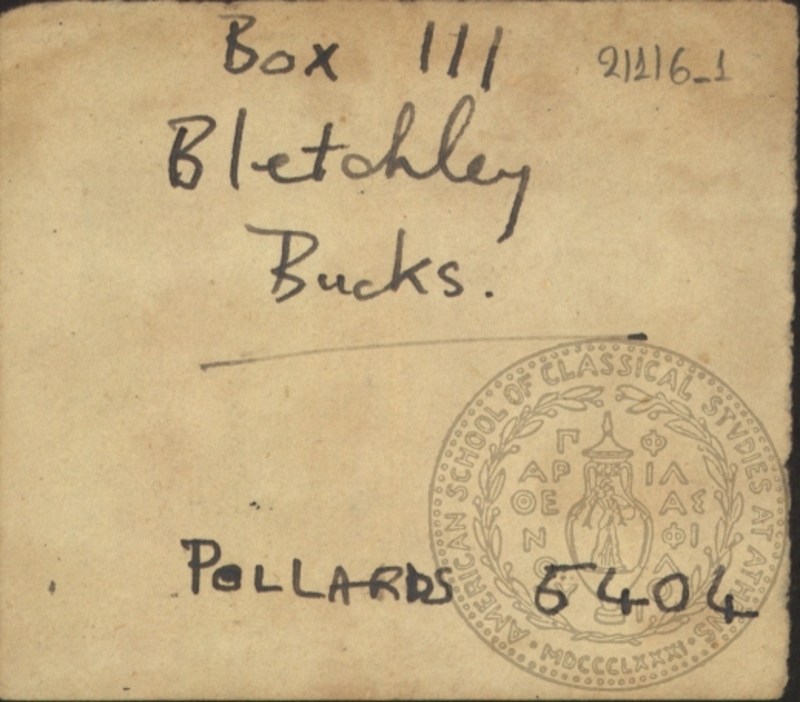 Box 111
2|1|6_1
Bletchley
Bucks.
POLLARDS 5404
AMERICAN SCHOOL OF CLASSICAL STUDIES AT ATHENS
Γ Φ
ΑΡ ΙΛ
ΘΕ ΑΣ
Ν ΦΙ
MDCCCLXXXI